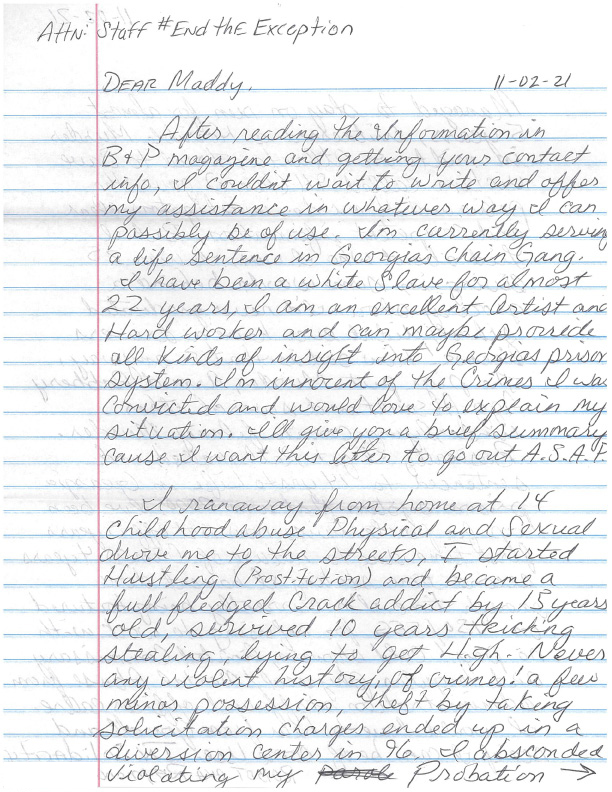 Attn: Staff #End the Exception
Dear Maddy, 11-02-21
After reading the Information in
B&P magazine and getting your contact
info, I couldnt wait to write and offer
my assistance in whatever way I can
possibly be of use. I'm currently serving
a life sentence in Georgias Chain Gang.
I have been a white slave for almost
22 years, I am an excellent Artist and
Hard worker and can maybe provide
all kinds of insight into Georgias prison
system. I'm innocent of the Crimes I was
Convicted and would love to explain my
situation. Ill give you a brief summary
cause I want this letter to go out A.S.A.P.
I ranaway from home at 14
Childhood abuse Physical and Sexual
drove me to the streets, I started
Hustling (Prostitution) and became a
full fledged Crack addict by 15 years
old, survived 10 years tricking
stealing, lying to get High. Never
any violent history of crimes! a few
minor possession, theft by taking
solicitation charges ended up in a
diversion center in 96. I absconded
violating my parole Probation →